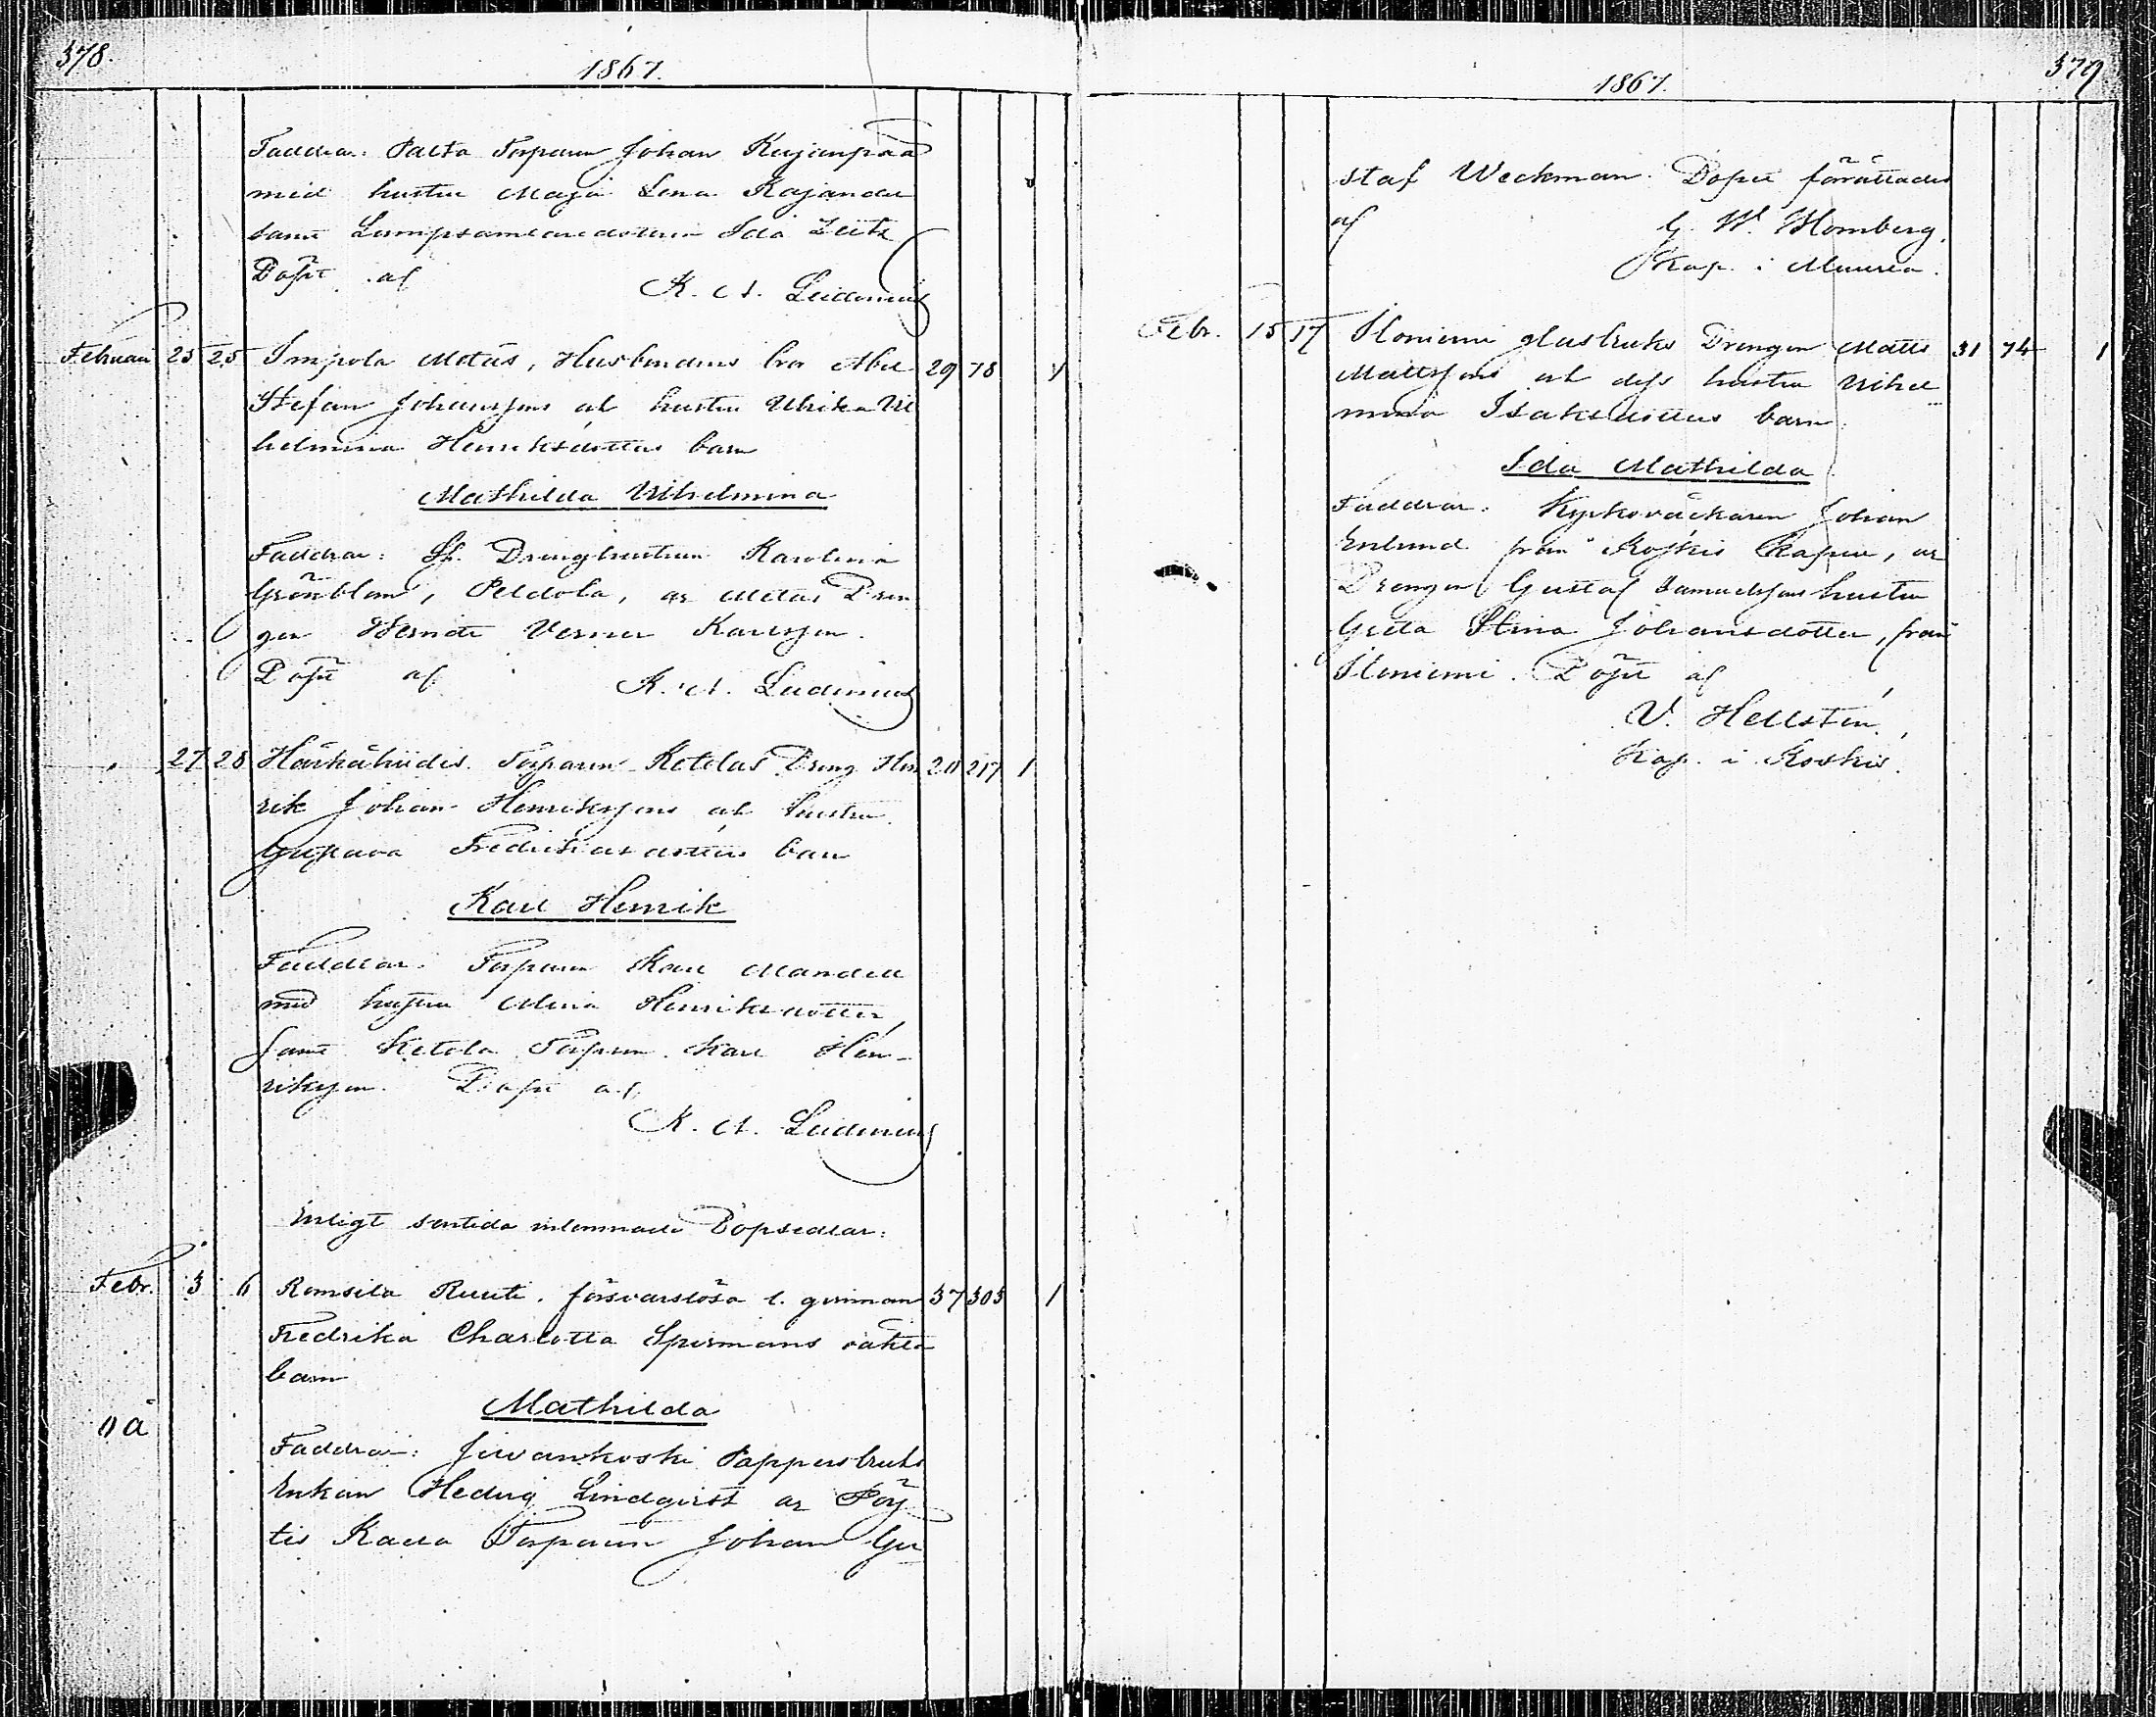 378.
1867.
Faddrar: Palta Torparen Johan Kujanpää
med hustru Maja Lena Kajander
samt Lumpsamlaredottren Ida
Döpt af
K. A. Leidenius
Februari 25 25 Impola Mötäs, Husbondens bror Abel 29 78 1
Stefan Johanssons och hustru Ulrika Vil
helmina Henriksdotters barn
Mathilda Vilhelmina
Faddrar: Sp. Drenghustrun Karolina
Grönblom, Peldola, och Mötäs Dren
gen Verner Karlsson.
Döpt af
K. A. Leidenius
27 28 Härkähiidis Torparen Ketolas Dreng Hen 20 217 1
rik Johan Henrikssons och hustru
Gustava Fredriksdotters barn
Karl Henrik
Faddrar: Torparen Karl Mandell
med hustru Maria Henriksdotter,
samt Ketola Torparen Karl Hen-
riksson. Döpt af
K. A. Leidenius
Enligt sentida inlemnade Dopsedlar:
Febr. 3 6 Romsila Ruuti, försvarslösa qvinnan 37 303 1
Fredrika Charlotta Spirmans oäkta
barn
oä
Mathilda
Faddrar: Juvankoski Pappersbruks
Enkan Hedvig Lindqvist och Pöy
tis Torparen Johan Gu
379
1867.
staf Weckman. Dopet förrättades
af G. W. Blomberg.
Kap. i Muurla.
Febr. 15 17 Iloniemi glasbruks Drengen Matts 31 74 1
Mattssons och dess hustru Vilhel
mina Isaksdotters barn
Ida Mathilda
Faddrar: Kyrkoväktaren Johan
Enlund från Koskis Kapell, och
Drengen Gustaf Samuelssons hustru
Greta Stina Johansdotter, från
Iloniemi. Döpt af
V. Hellstén,
Kap. i Koskis.